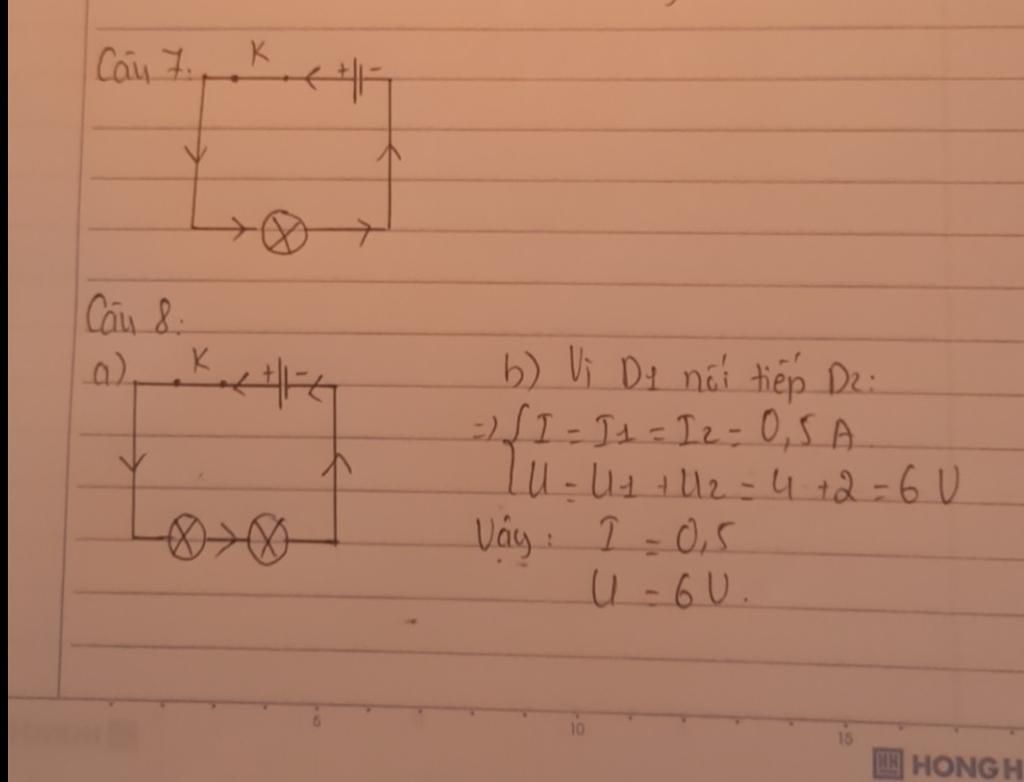 Câu 7.
K
+ -
Câu 8:
a)
K
+ -
b) Vì D1 nối tiếp D2:
=> { I = I1 = I2 = 0,5 A
U = U1 + U2 = 4 + 2 = 6 V
Vậy: I = 0,5
U = 6 V.
5 10 15
HONG H